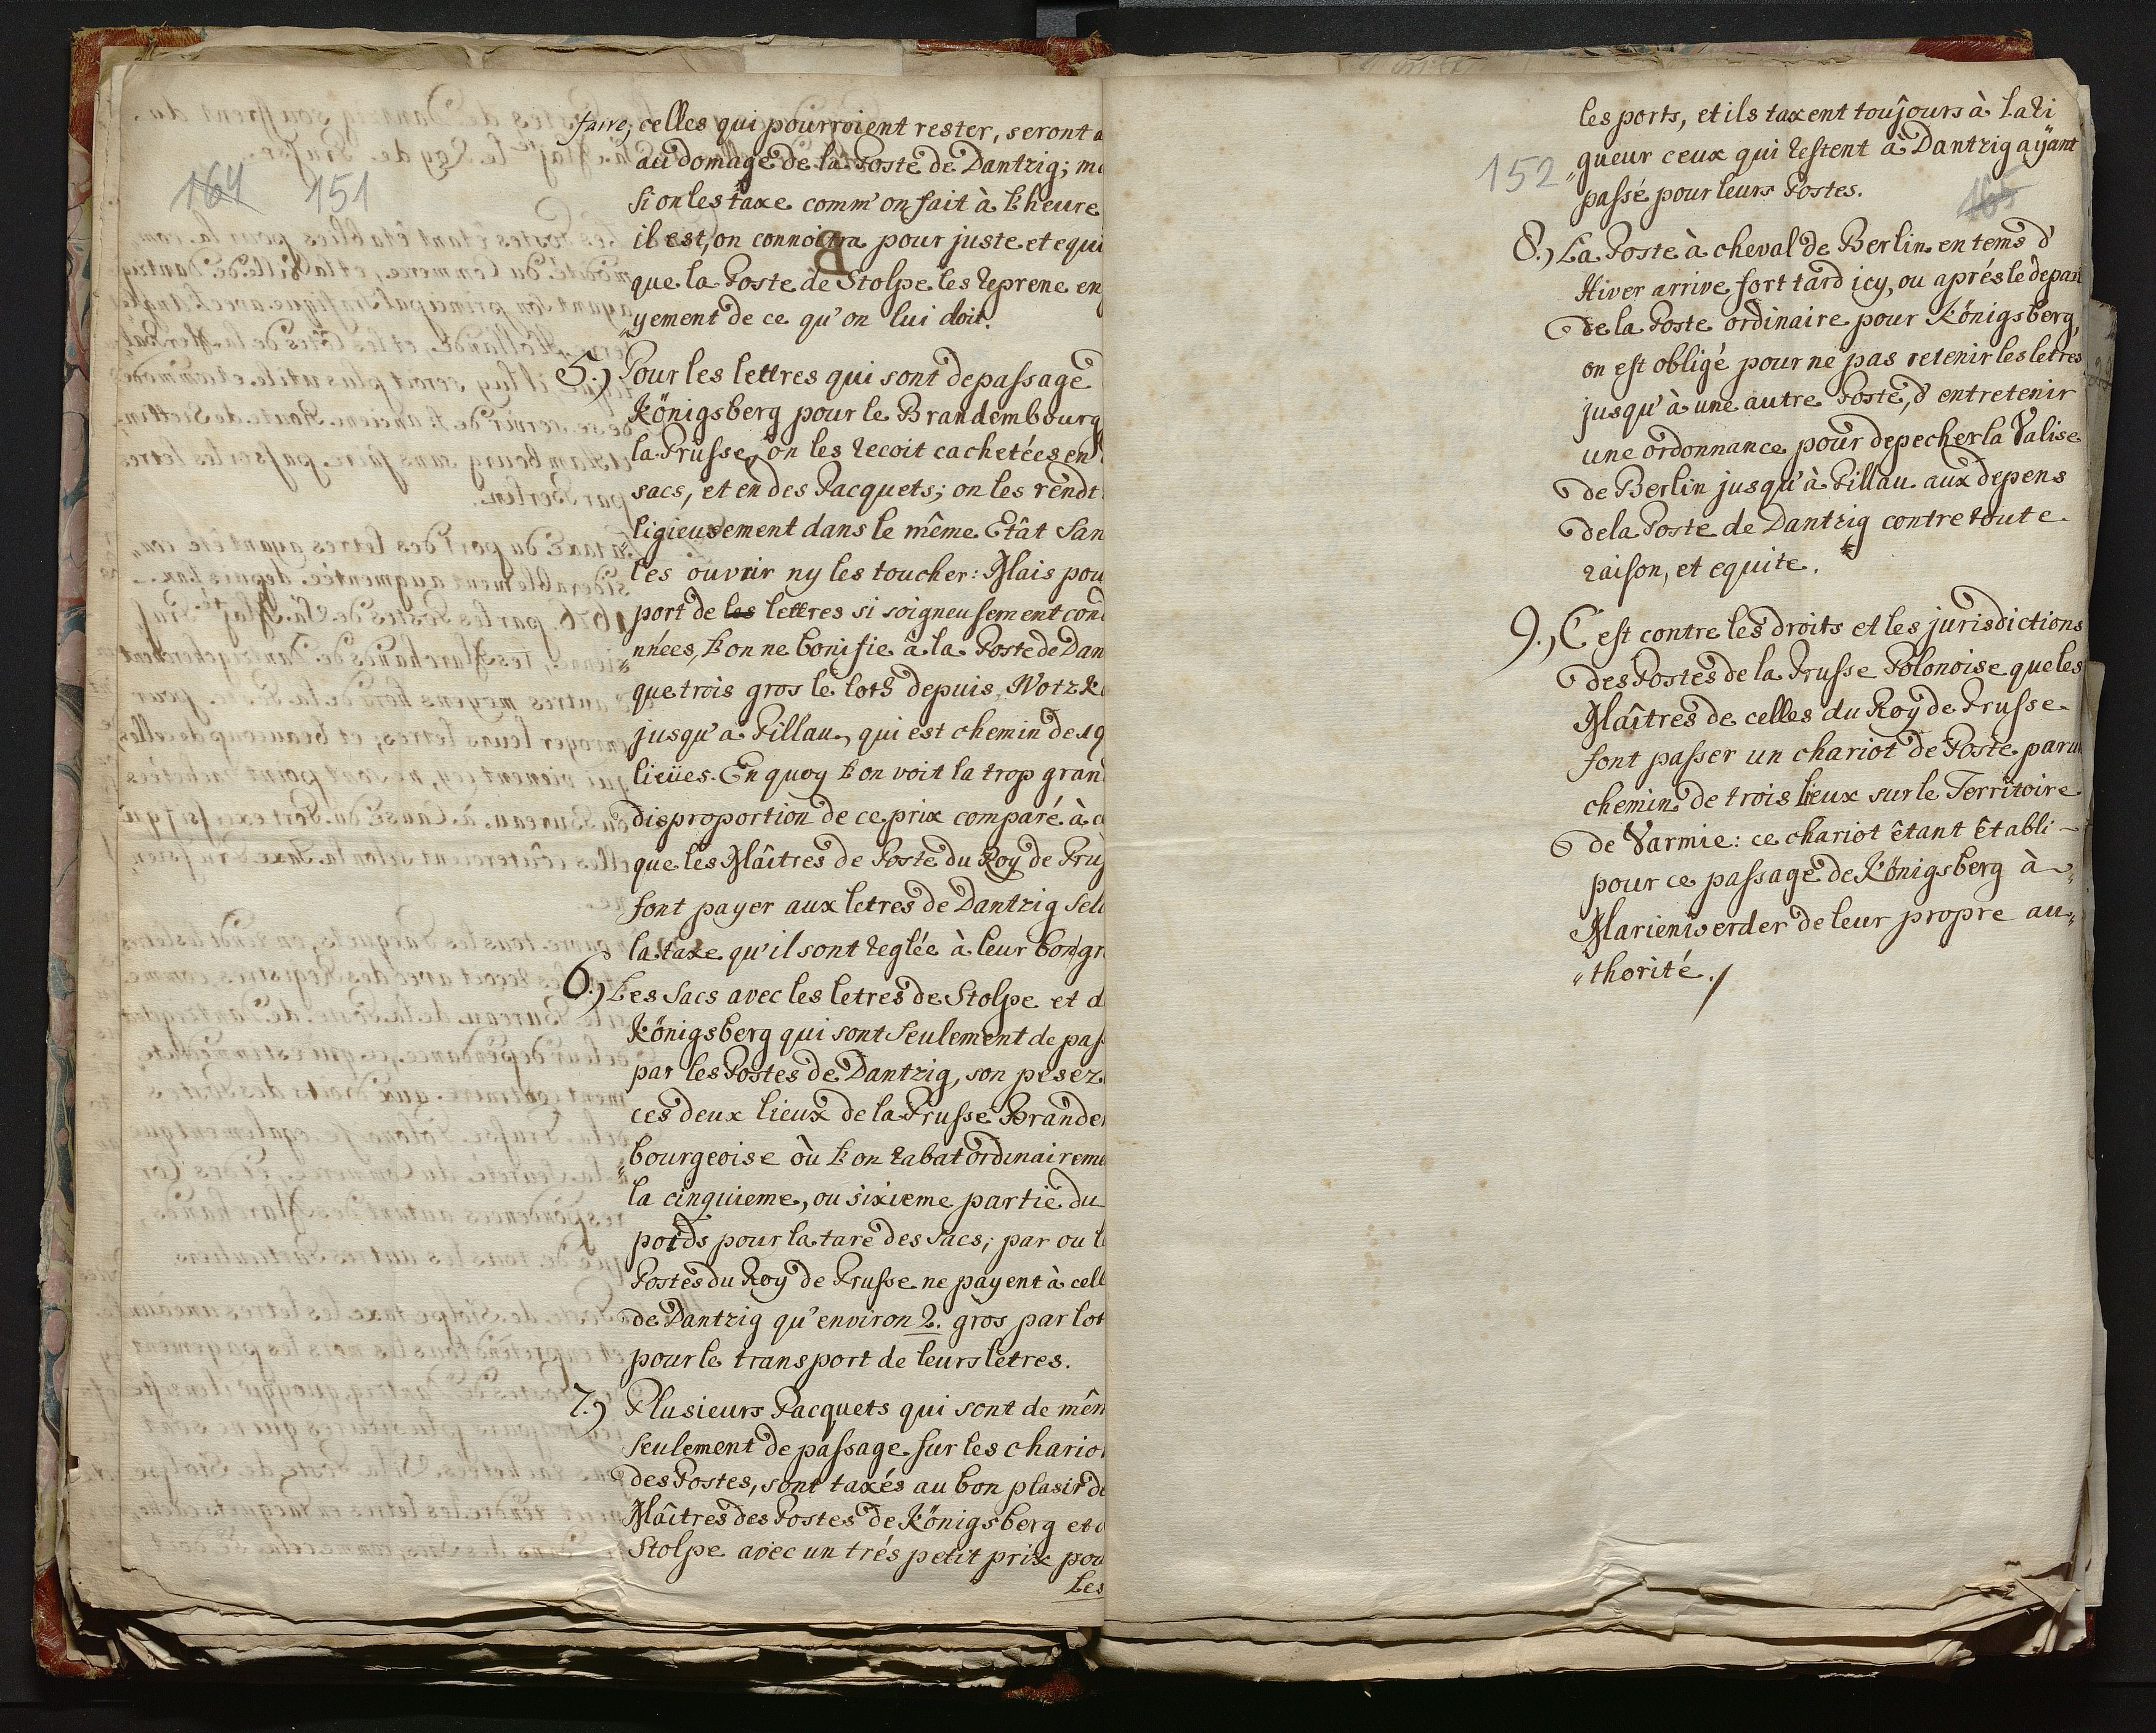 164 151
faire; celles qui pourroient rester, seront a
au domage de la Poste de Dantzig; ma
si on les taxe comm' on fait à l'heure
il est, on connoitra pour juste et equi
que la Poste de Stolpe les reprene en
„yement de ce qu'on lui doit.
5.) Pour les lettres qui sont de passage
Königsberg pour le Brandembourg
la Prusse, on les recoit cachetées en
sacs, et en des Pacquets; on les rendt
ligieusement dans le même Etât San
les ouvrir ny les toucher: Mais pou
port de les lettres si soigneusement con
nnées, l'on ne bonifie à la Poste de Dan
que trois gros le loth depuis Notzk
jusqu'a Pillau, qui est chemin de 19
lieües. En quoy l'on voit la trop gran
disproportion de ce prix comparé à c
que les Maîtres de Poste du Roy de Prus
font payer aux letres de Dantzig sel
la taxe qu'il sont reglée à leur bon gr
6.) Les Sacs avec les letres de Stolpe et d
Königsberg qui sont Seulement de pas
par les Postes de Dantzig, son pesez
ces deux lieux de la Prusse Brande
bourgeoise où l'on rabat ordinaireme
la cinquieme, ou sixieme partie du
poids pour la tare des Sacs; par ou l
Postes du Roy de Prusse ne payent à cell
de Dantzig qu'environ 2. gros par lot
pour le transport de leurs letres.
7.) Plusieurs Pacquets qui sont de mêm
seulement de passage sur les chario
des Postes, sont taxés au bon plasir de
Maîtres des Postes de Königsberg et d
Stolpe avec un trés petit prix pou
les
152 165
les ports, et ils taxent toûjours à la ri
„gueur ceux qui restent à Dantzig aÿant
passé pour leurs Postes.
8.) La Poste à cheval de Berlin en tems d'
Hiver arrive fort tard icy, ou aprés le depart
de la Poste ordinaire pour Königsberg,
on est obligé pour ne pas retenir les letres
jusqu'à une autre Poste, d'entretenir
une ordonnance pour depecher la Valise
de Berlin jusqu'à Pillau aux depens
de la Poste de Dantzig contre toute
raison, et equite.
9.) C'est contre les droits et les jurisdictions
des Postes de la Prusse Polonoise que les
Maîtres de celles du Roy de Prusse
font passer un chariot de Poste par un
chemin de trois lieux sur le Territoire
de Varmie: ce chariot êtant êtabli
pour ce passage de Königsberg à
Marienwerder de leur propre au„
„thorité.